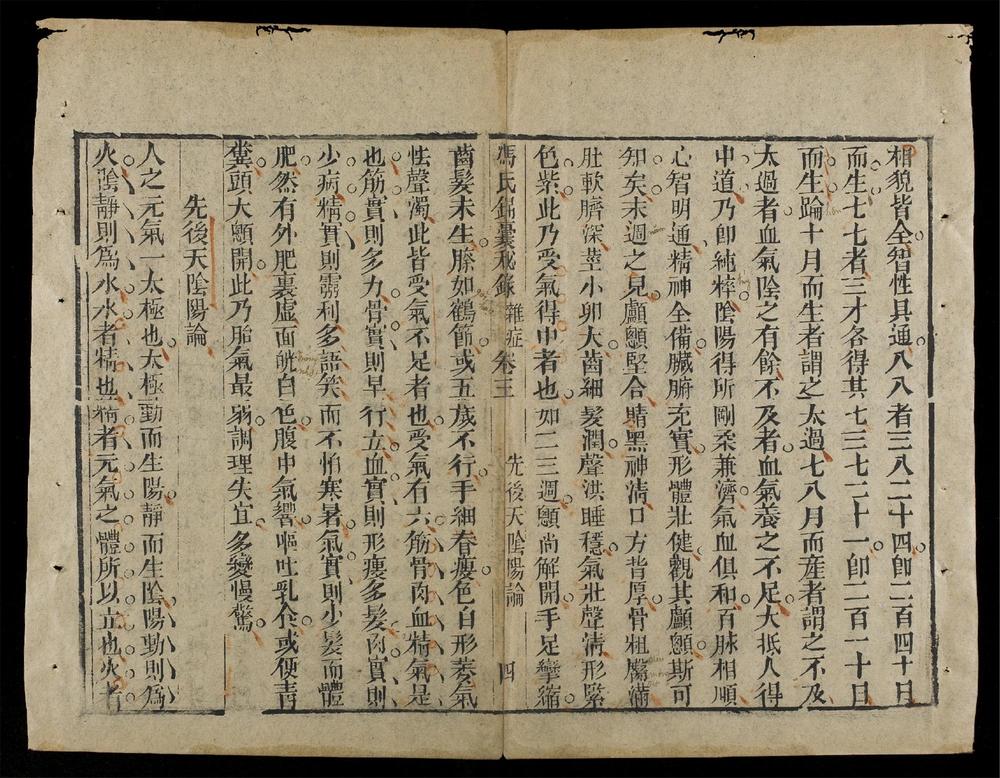 相貌皆全智性具通八八者三八二十四卽二百四十日
而生七七者三才各得其七三七二十一卽二百一十日
而生踰十月而生者謂之太過七八月而產者謂之不及
太過者血氣陰之有餘不及者血氣養之不足大抵人得
中道乃卽純粹陰陽得所剛柔兼濟氣血俱和百脉相順
心智明通精神全備臟腑充實形體壯健觀其顱顖斯可
知矣未週之兒顱顖堅合睛黑神清口方背厚骨粗臀滿
肚軟臍深莖小卵大齒細髮潤聲洪睡穩氣壯聲淸形緊
色紫此乃受氣得中者也如二三週顖尚解開手足攣縮
馮氏錦囊秘錄 雜症 卷三 先後天陰陽論 四
齒髮未生膝如鶴節或五歲不行手細脊瘦色白形萎氣
怯聲濁此皆受氣不足者也受氣有六筋骨肉血精氣是
也筋實則多力骨實則早行立血實則形瘦多髮肉實則
少病精實則靈利多語笑而不怕寒暑氣實則少髮而體
肥然有外肥裏虛面㿠白色腹中氣響嘔吐乳食或便靑
糞頭大顖開此乃胎氣最弱調理失宜多變慢驚
先後天陰陽論
人之元氣一太極也太極動而生陽靜而生陰陽動則爲
火陰靜則爲水水者精也精者元氣之體所以立也火者